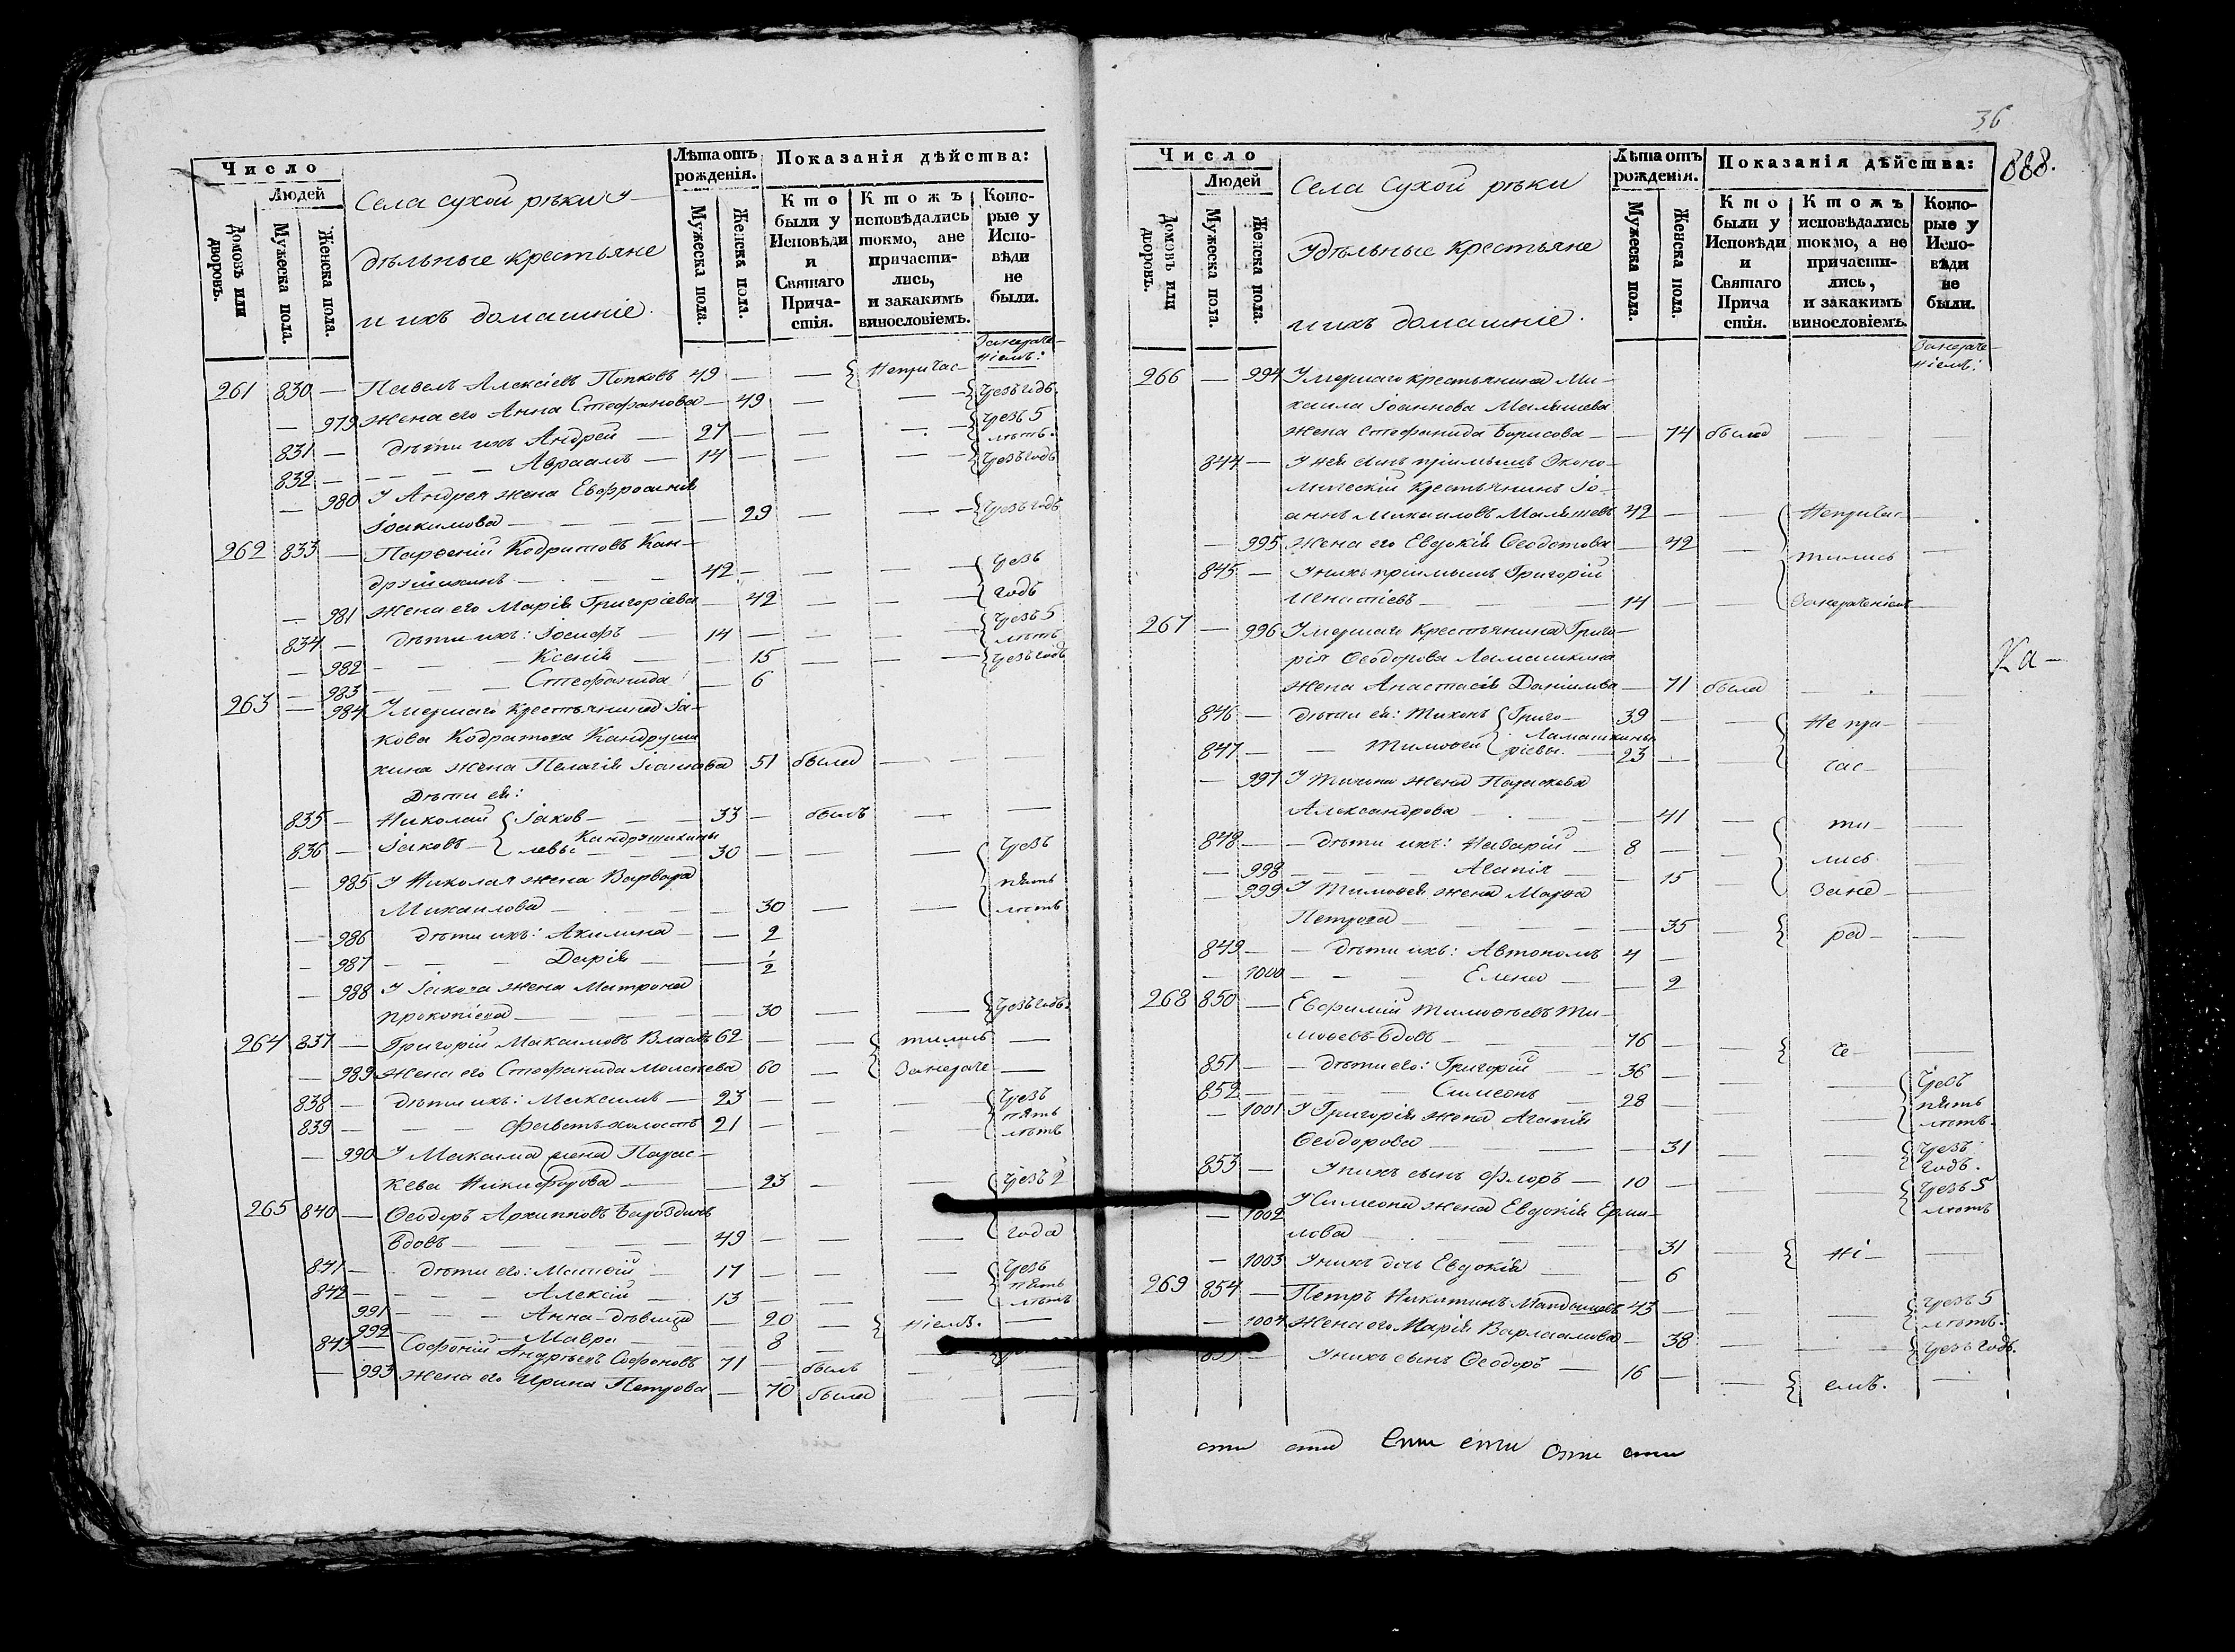 Число
Людей
Домовъ или дворовъ.
Мужеска пола.
Женска пола.
Села Сухой рѣки У-
дѣльные крестьяне
и ихъ домашніе.
Лѣта отъ рожденія.
Мужеска пола.
Женска пола.
Показанія дѣйства:
Кто были у Исповѣди и Святаго Причастія.
Ктожъ исповѣдались токмо, а не причастились, и закакимъ винословіемъ.
Которые у Исповѣди не были.
261 830 — Павелъ Алексіевъ Попковъ 49 — — Непричас-
— 979 Жена его Анна Стефанова — 49 — — Чрезъ годъ.
831 — Дѣти ихъ Андрей — 27 — — — Чрезъ 5 лѣтъ.
832 — — — Авраамъ — 14 — — — Чрезъ годъ
— 980 У Андрея жена Евфросинія
Іоакимова — — 29 — — Чрезъ годъ
262 833 — Парѳеній Кодратовъ Кан-
друшихинъ — 42 — — — Чрезъ
— 981 Жена его Марія Григоріева — 42 — — годъ
834 — Дѣти ихъ: Іосифъ — 14 — — — Чрезъ 5 лѣтъ
— 982 — — Ксенія — — 15 — — Чрезъ годъ
— 983 — — Стефанида — 6
263 — 984 Умершаго крестьянина Іа-
кова Кодратова Кандруши
хина жена Пелагія Іоаннова 51 была — —
Дѣти ея:
835 — Николай Іаков- — 33 — былъ — —
836 — Іаковъ — левы Кандрушихины — 30 — — — Чрезъ
— 985 У Николая жена Варвара пять
Михаилова — — 30 — — лѣтъ
— 986 Дѣти ихъ: Акилина — — 2
— 987 — — Дарія — — 1/2
— 988 У Іакова жена Матрона
Прокопіева — — 30 — — Чрезъ годъ.
264 837 — Григорій Максимовъ Власовъ 62 — — тились —
— 989 Жена его Стефанида 60 — Занераче —
838 — Дѣти ихъ: Максимъ — 23 — — — Чрезъ пять лѣтъ
839 — — — холостъ 21 — — —
— 990 У Максима жена Парас-
кева Никифорова — — 23 — — Чрезъ 2
265 840 — Ѳеодоръ Архиповъ
вдовъ — 49 — — — года
841 — Дѣти его: Матѳій — 17 — — — Чрезъ пять лѣтъ
842 — — — Алексій — 13 — — —
991 — — Анна дѣвица — 20 — ніемъ. —
992 — — Мавра — — 8 —
843 — Софоній Андрѣевъ Софоновъ 71 — былъ —
— 993 Жена его Ирина Петрова — 70 была — —
36
888.
Число
Людей
Домовъ или дворовъ.
Мужеска пола.
Женска пола.
Села Сухой рѣки
Удѣльные крестьяне
и ихъ домашніе.
Лѣта отъ рожденія.
Мужеска пола.
Женска пола.
Показанія дѣйства:
Кто были у Исповѣди и Святаго Прича стія.
Ктожъ исповѣдались токмо, а не причастились, и закакимъ винословіемъ.
Которые у Исповѣди не были.
266 — 994 Умершаго крестьянина Ми-
хаила Іоаннова Малышева
жена Стефанида Борисова — — 74 была — —
844 — У нея сынъ пріимышъ Эконо-
мическій крестьянинъ Іо-
аннъ Михаиловъ Малышевъ 42 — — Непричас- —
— 995 Жена его Евдокія Ѳеодотова — 42 — тились —
845 — У нихъ пріимышъ Григорій
Игнатіевъ — — 14 — — Занераченіемъ —
267 — 996 Умершаго крестьянина Григо-
рія Ѳеодорова Ламашкина
жена Анастасія Даніилова — 71 была — —
Ка-
846 — Дѣти ея: Тихонъ Григо- 39 — — Не при- —
847 — — Тимоѳей ріевы. Ламашкины 23 — — час- —
— 997 У Тихона жена Параскева
Александрова — — 41 — ти- —
848 — — Дѣти ихъ: Назарій — 8 — — лись —
— 998 — — Агапія — — 15 — Зане- —
— 999 У Тимоѳея жена Марѳа
Петрова — — 35 — ра- —
849 — — Дѣти ихъ: Автономъ 4 —
— 1000 — — Елена — — 2
268 850 — Евфимій Тимоѳеевъ Ти-
моѳеевъ вдовъ — 76 — — че- —
851 — — Дѣти его: Григорій 36 — — — Чрезъ
852 — — Симеонъ — 28 — пять
— 1001 У Григорія жена Агапія лѣтъ.
Ѳеодорова — — 31 — — Чрезъ
853 — У нихъ сынъ Флоръ — 10 — — — годъ.
— 1002 У Симеона жена Евдокія Ерми- Чрезъ 5 лѣтъ
лова — — 31 — ні- —
— 1003 У нихъ дочь Евдокія — — 6
269 854 — Петръ Никитинъ 43 — — — Чрезъ 5 лѣтъ.
— 1004 Жена его Марія Варлаамова — 38 — — Чрезъ годъ.
855 — У нихъ сынъ Ѳеодоръ — 16 — — емъ. —